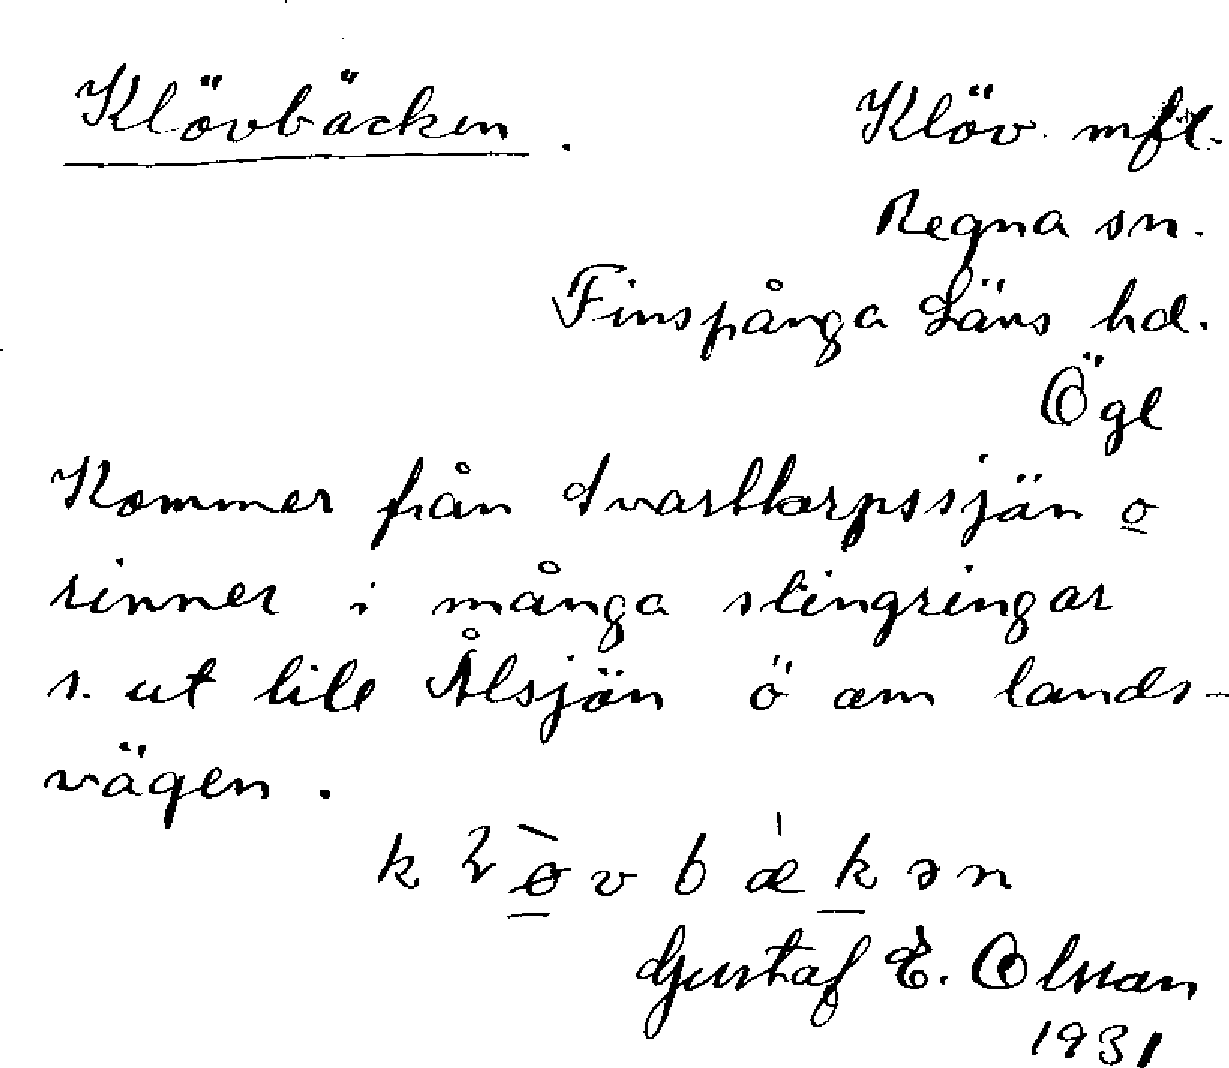 Klövbäcken. Klöv mfl.
Regna sn.
Finspånga Läns hd.
Ögl
Kommer från Svarttorpssjön o
rinner i många slingringar
s. ut till Ålsjön ö om lands-
vägen.
Gustaf E. Olsson
1931